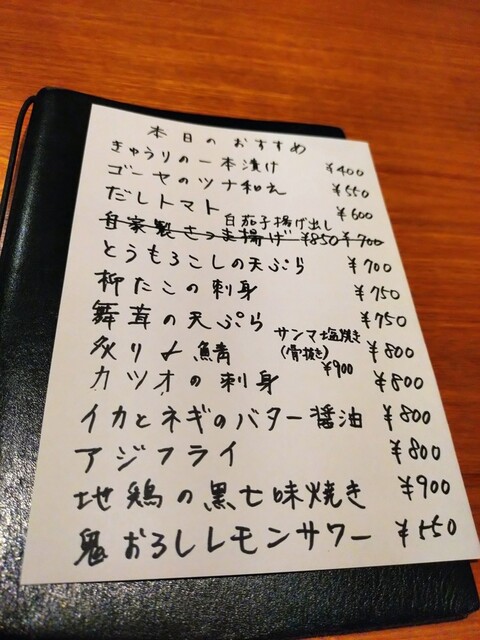 本日のおすすめ
きゅうりの一本漬け ¥400
ゴーヤのツナ和え ¥550
だしトマト ¥600
白茄子揚げ出し
自家製さつま揚げ ¥850 ¥700
とうもろこしの天ぷら ¥700
柳たこの刺身 ¥750
舞茸の天ぷら ¥750
サンマ塩焼き
(骨抜き)
¥900
炙り〆鯖 ¥800
カツオの刺身 ¥800
イカとネギのバター醤油 ¥800
アジフライ ¥800
地鶏の黒七味焼き ¥900
鬼おろしレモンサワー ¥550